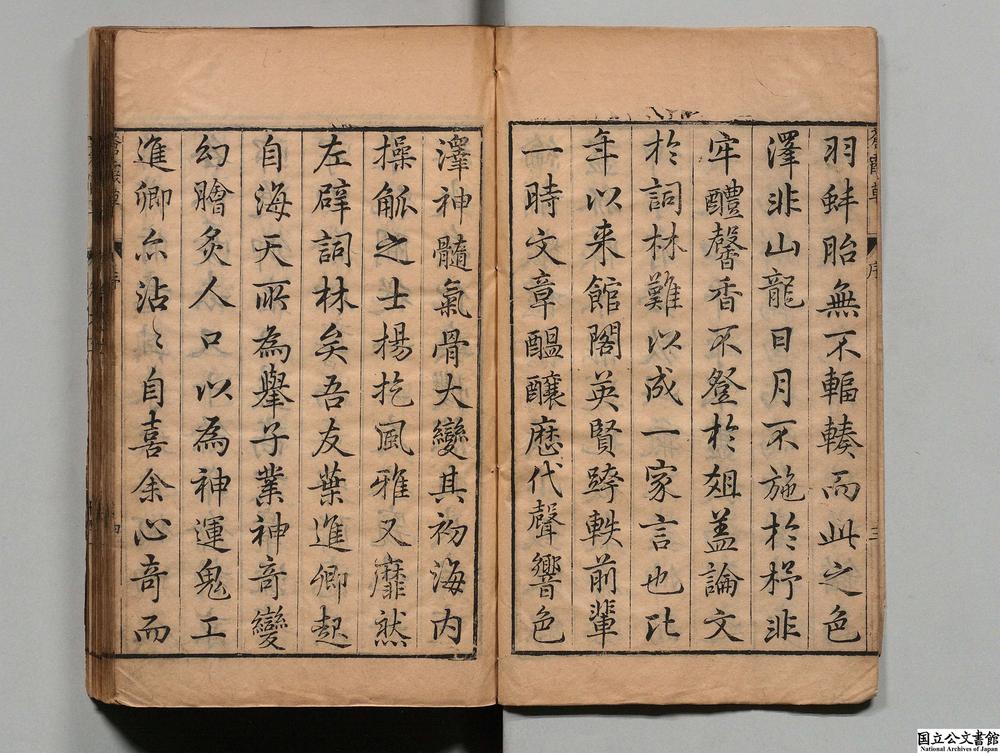 蒼霞草
序
三
羽蚌胎無不輻輳而此之色
澤非山龍日月不施於杼非
牢醴馨香不登於俎盖論文
於詞林難以成一家言也比
年以来館閣英賢跨軼前輩
一時文章醖釀歴代聲響色
澤神髓氣骨大變其初海内
操觚之士揚扢風雅又靡然
左辟詞林矣吾友葉進卿起
自海天所為舉子業神竒變
幻膾炙人口以為神運鬼工
進卿亦沾〻自喜余心竒而
蒼霞草
序
四
国立公文書館
National Archives of Japan